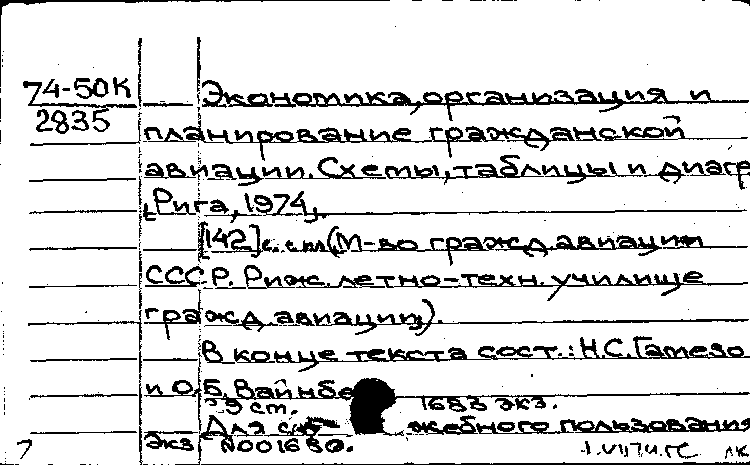 74-50К
2835
Экономика, организация и
планирование гражданской
авиации. Схемы, таблицы и диагр
[Рига, 1974].
[142] с. с ил (М-во гражд. авиации
СССР. Риж. летно-техн. училище
гражд. авиации).
В конце текста сост.: Н.С. Гамезо
и О.Б. Вайнбе
29 см. 1683 экз.
Для служебного пользования
Экз №001680.